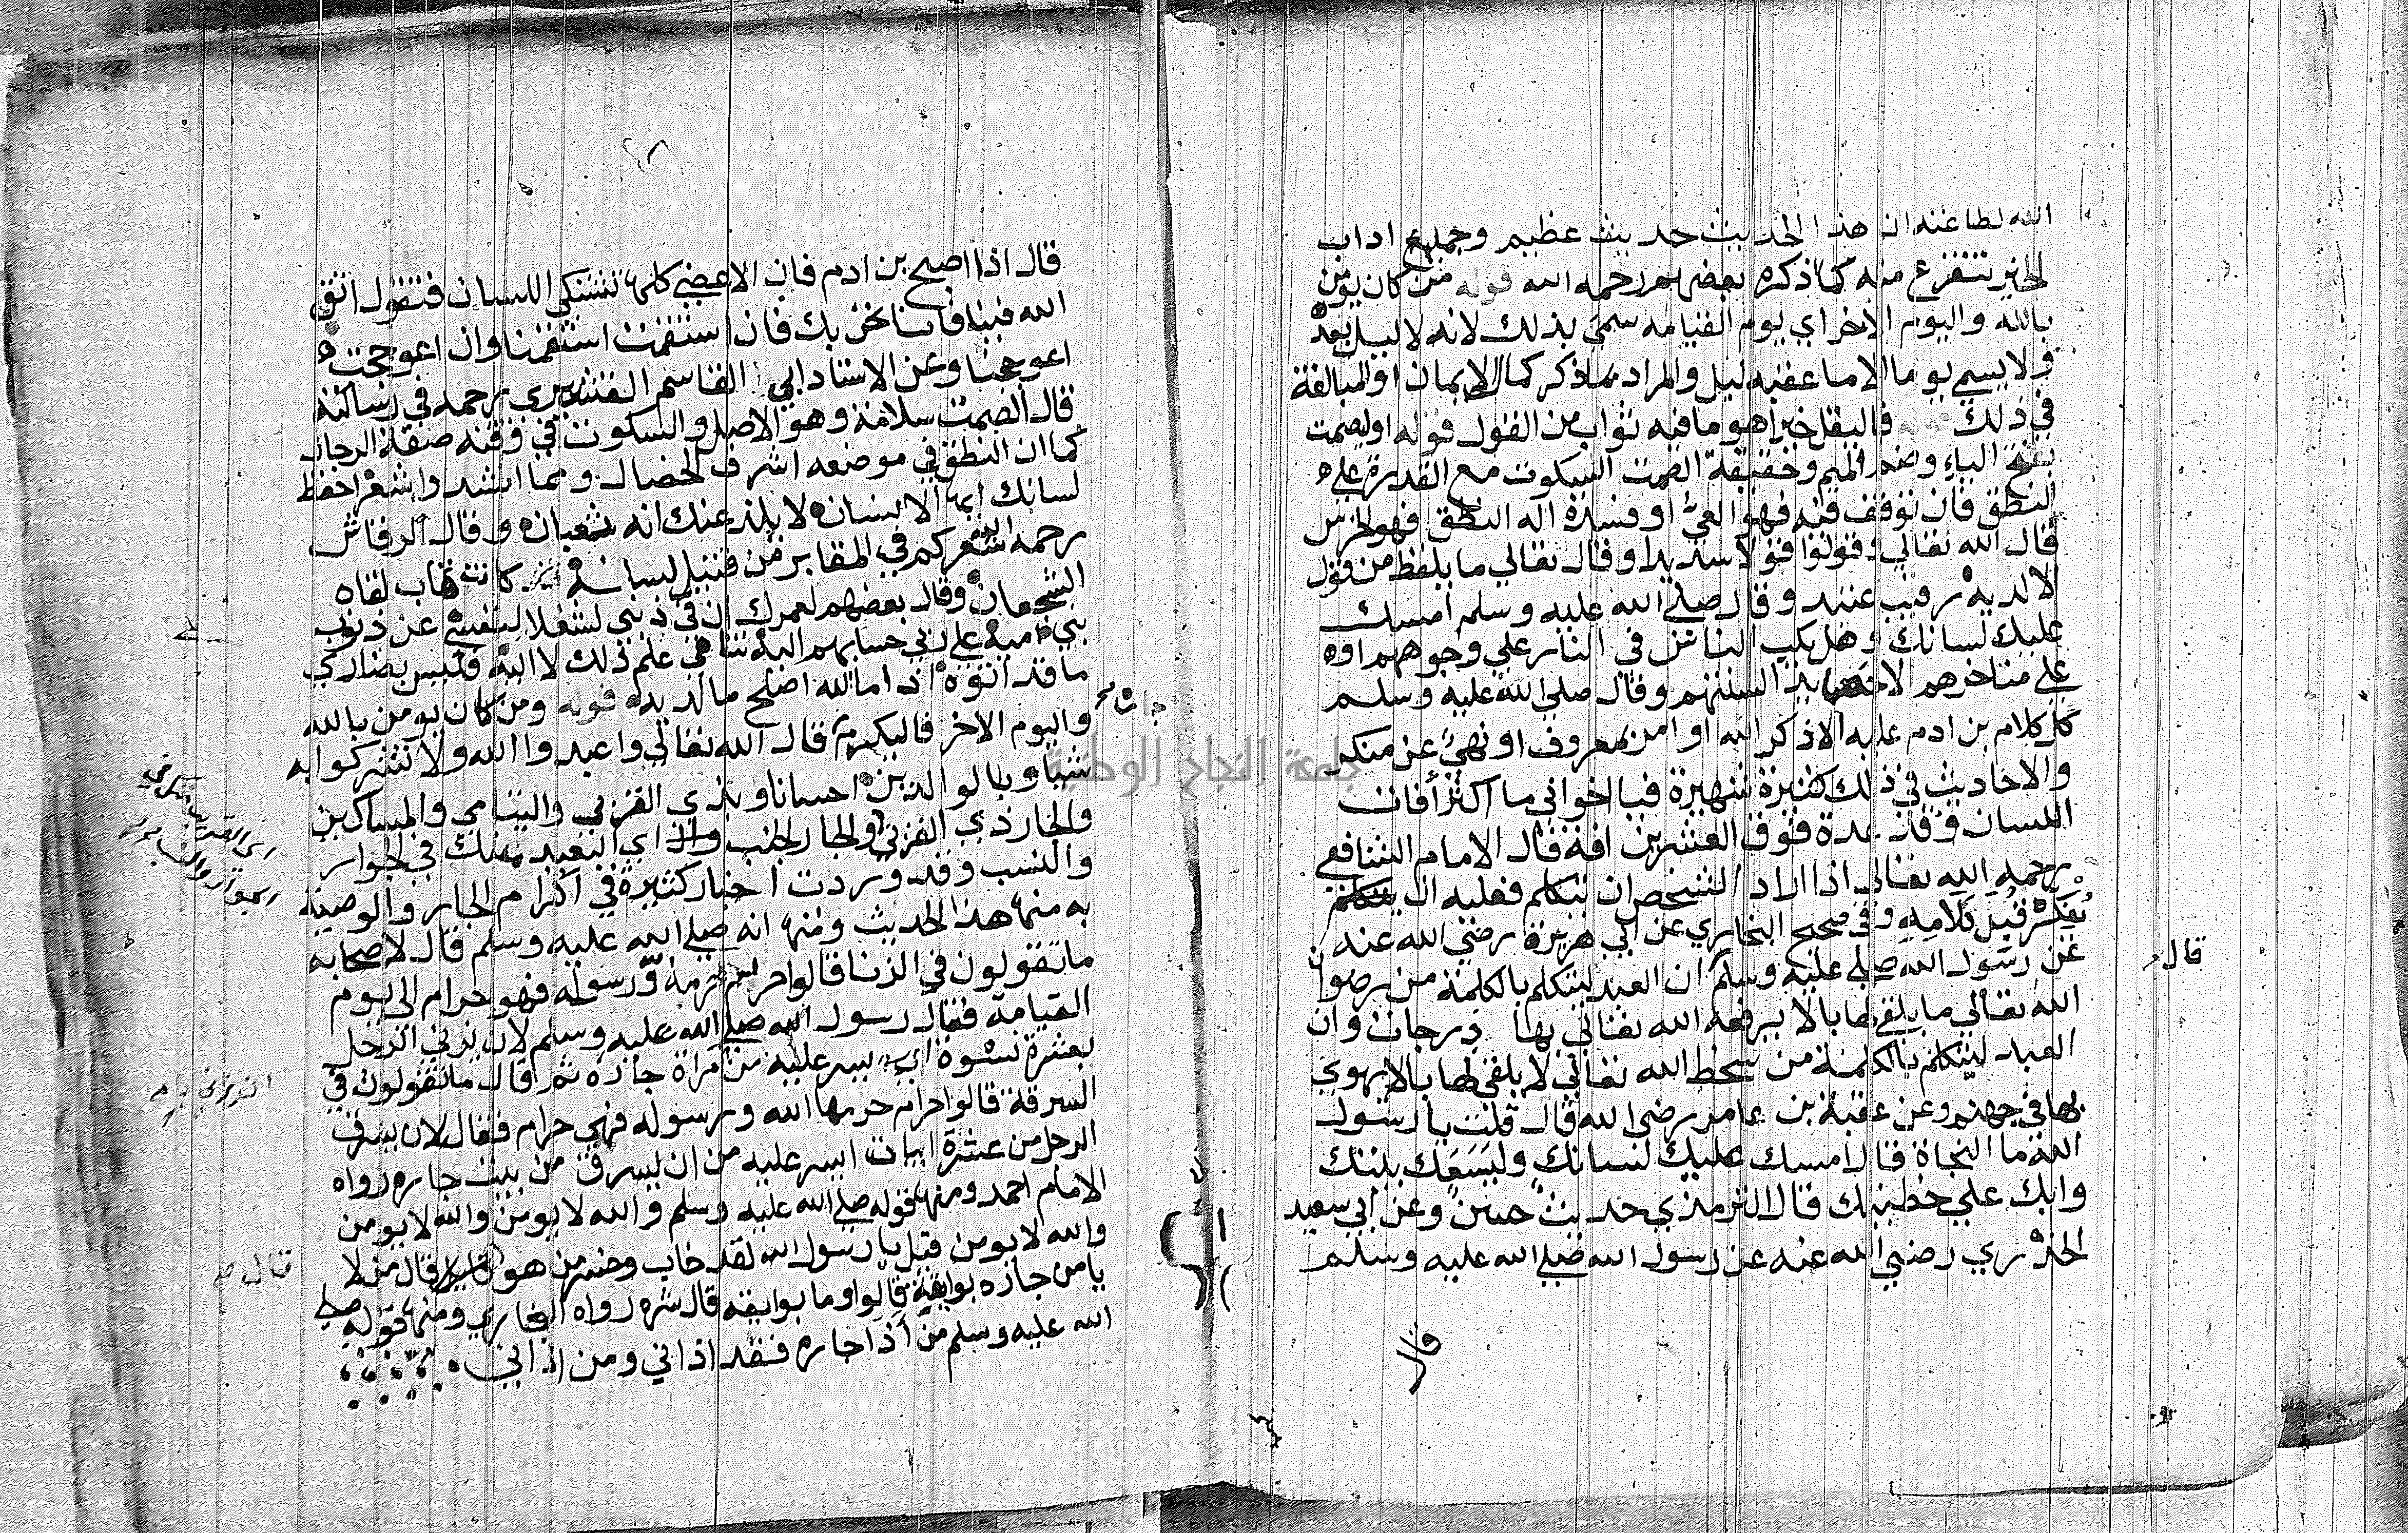 الله لطاعته ان هذا الحديث حديث عظيم وجميع اداب
الخير تتفرع منه كما ذكره بعضهم رحمه الله قوله من كان يومن
بالله واليوم الاخر اي يوم القيامه سمي بذلك لانه لا ليل بعده
ولا يسمي يوما الا ما عقبه ليل والمراد بما ذكر كمال الايمان او المبالغة
في ذلك فاليقل خيرا هو ما فيه ثواب من القول قوله او ليصمت
بفتح الياء وضم الميم وحقيقة الصمت السكوت مع القدرة علي
النطق فان توقف فيه فهو العي او فسدة اله النطق فهو الخرس
قال الله تعالي وقولوا قولا سديدا وقال تعالي ما يلفظ من قول
الا لديه رقيب عتيد وقال صلي الله عليه وسلم امسك
عليك لسانك وهل يكب الناس في النار علي وجوههم او
علي مناخرهم الا حصايد السنتهم وقال صلي الله عليه وسلم
كل كلام بن ادم عليه الا ذكر الله او امر بمعروف او نهي عن منكر
والاحاديث في ذلك كثيرة شهيرة فيا اخواني ما اكثر أفات
اللسان وقد عدة فوق العشرين افة قال الامام الشافعي
رحمه الله تعالي اذا اراد الشخص ان يتكلم فعليه ان
يفكر قبل كلامه وفي صحيح البخاري عن ابي هريرة رضي الله عنه
عن رسول الله صلي عليه وسلم ان العبد ليتكلم بالكلمة من رضوان
قال
الله تعالي ما يلقي لها بالا يرفعه الله تعالي بها درجات وان
العبد ليتكلم بالكلمة من سخط الله تعالي لا يلقي لها بالا يهوي
بها في جهنم وعن عقبة بن عامر رضي الله قال قلت يا رسول
الله ما النجاة قال امسك عليك لسانك وليسعك بيتك
وابك علي خطيتك قال الترمذي حديث حسن وعن ابي سعيد
الخدري رضي الله عنه عن رسول الله صلي الله عليه وسلم
قال
قال اذا اصبح بن ادم فان الاعضي كلها تشتكي اللسان فتقول اتق
الله فينا فانا نحن بك فان استقمت استقمنا وان اعوججت
اعوججنا وعن الاستاد ابي القاسم القشيري رحمه في رسالته
قال الصمت سلامة وهو الاصل والسكوت في وقته صفة الرجال
كما ان النطق في موضعه اشرف الخصال ومما انشد واشعر احفظ
لسانك ايها الانسان لا يلدغنك انه ثعبان وقال الرقاش
رحمه الله شعر كم في المقابر من قتيل لسانه كانت تهاب لقاه
الشجعان وقال بعضهم لعمرك ان في ذنبي لشغلا لنفسي عن ذنوب
بني امية علي ربي حسابهم اليه تناهي علم ذلك لا اليه فليس بضاري
ما قد اتوه اذا ما الله اصلح ما لديه قوله ومن كان يومن بالله
واليوم الاخر فاليكرم قال الله تعالي واعبدوا الله ولا تشركوا به
شيا وبالوالدين احسانا وبذي القربي واليتامي والمساكين
والجار ذي القربي والجار الجنب اي البعيد منك في الجوار
والنسب وقد وردت اخبار كثيرة في اكرام الجار والوصية
به منها هذا الحديث ومنها انه صلي الله عليه وسلم قال لاصحابه
ما تقولون في الزنا قالوا حرام حرمه ورسوله فهو حرام الي يوم
القيامة فقال رسول الله صلي الله عليه وسلم لان يزني الرجل
بعشرة نسوة ايسر عليه من مراة جاره ثم قال ما تقولون في
السرقة قالوا حرام حرمها الله ورسوله فهي حرام فقال لان يسرق
الرجل من عشرة ابيات ايسر عليه من ان يسرق من بيت جاره رواه
الامام احمد ومنها قوله صلي الله عليه وسلم والله لا يومن والله لا يومن
والله لا يومن قيل يا رسول الله لقد خاب وخسر من هو قال من لا
قال
يامن جاره بوايقه قالوا وما بوايقه قال شره رواه البخاري ومنها قوله صلي
الله عليه وسلم من أذا جاره فقد اذاني ومن اذاني
جامعة النجاح الوطنية